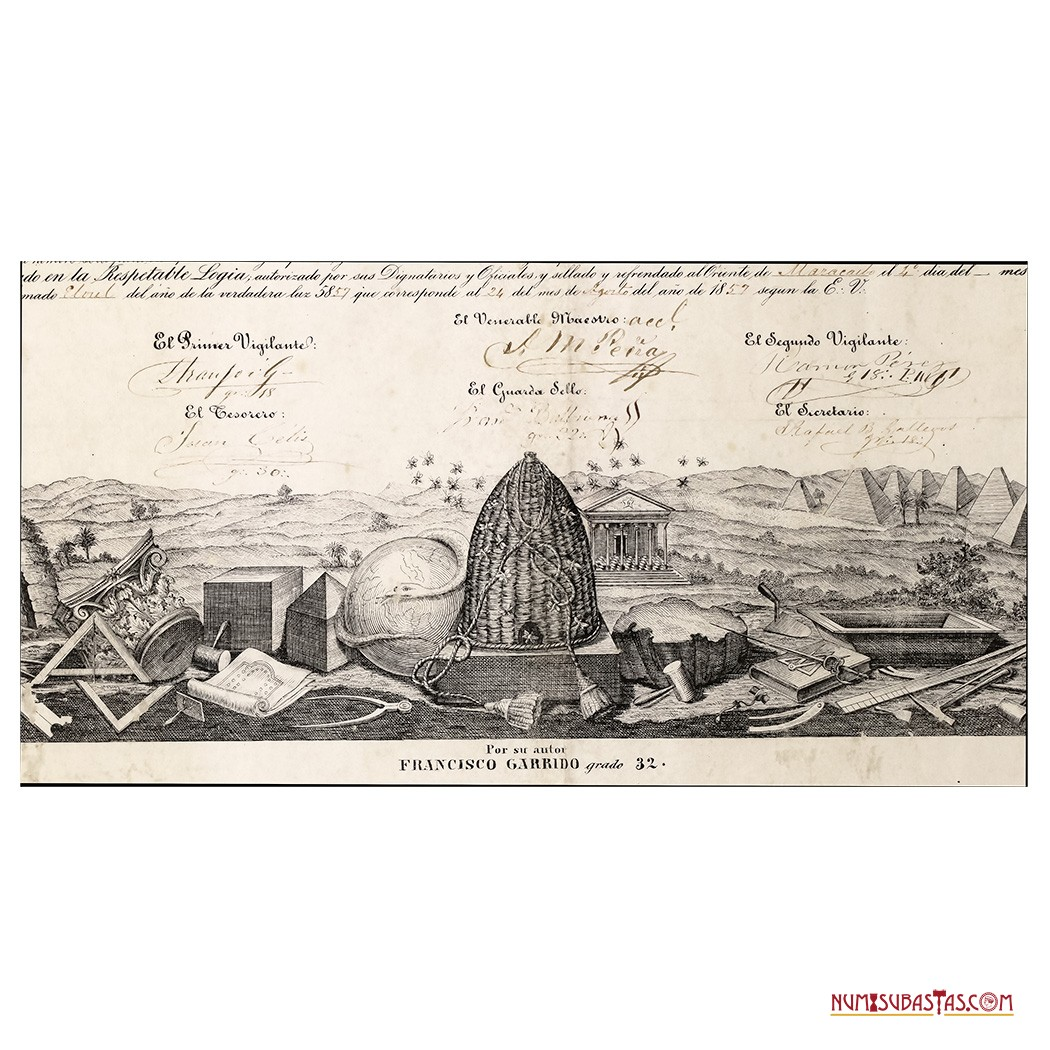 do en la Respetable Logia, autorizado por sus Dignatarios y Oficiales, y sellado y refrendado al Oriente de Maracaibo el 4º dia del — mes
mado Eloul del año de la verdadera luz 5857 que corresponde al 24 del mes de Agosto del año de 1857 segun la E∴ V∴
El Venerable Maestro: accl
El Primer Vigilante: El Segundo Vigilante:
S. M Peña
Ramon Perez
gr∴ 18 g 18∴
El Guarda Sello:
El Tesorero: El Secretario:
José
Juan Celis Rafael B Gallegos
gr. 30∴
Por su autor
FRANCISCO GARRIDO grado 32.
NUMISUBASTAS.COM